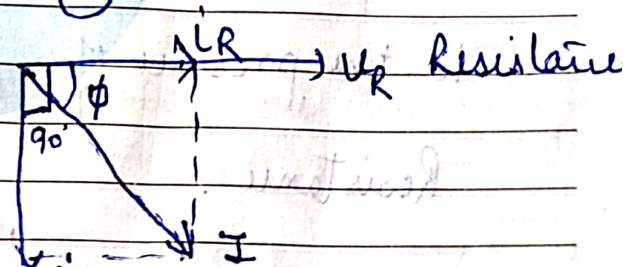 i_R
V_R Resistance
φ
90°
I